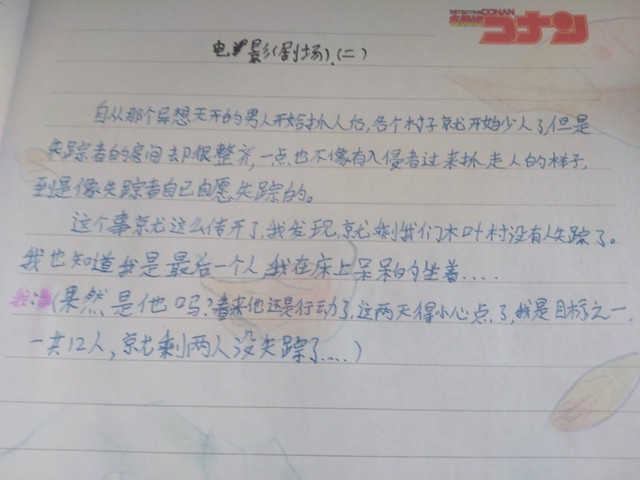 DETECTIVE CONAN
名探偵コナン
电影(剧场).(二)
自从那个异想天开的男人开始抓人后,各个村子就开始少人了,但是
失踪者的房间却很整齐,一点也不像有入侵者过来抓走人的样子,
到是像失踪者自己自愿失踪的。
这个事就这么传开了,我发现,就剩我们木叶村没有人失踪了。
我也知道我是最后一个人,我在床上呆呆的坐着....
我:(果然是他吗?看来他还是行动了,这两天得小心点了,我是目标之一,
一共12人,就剩两人没失踪了....)